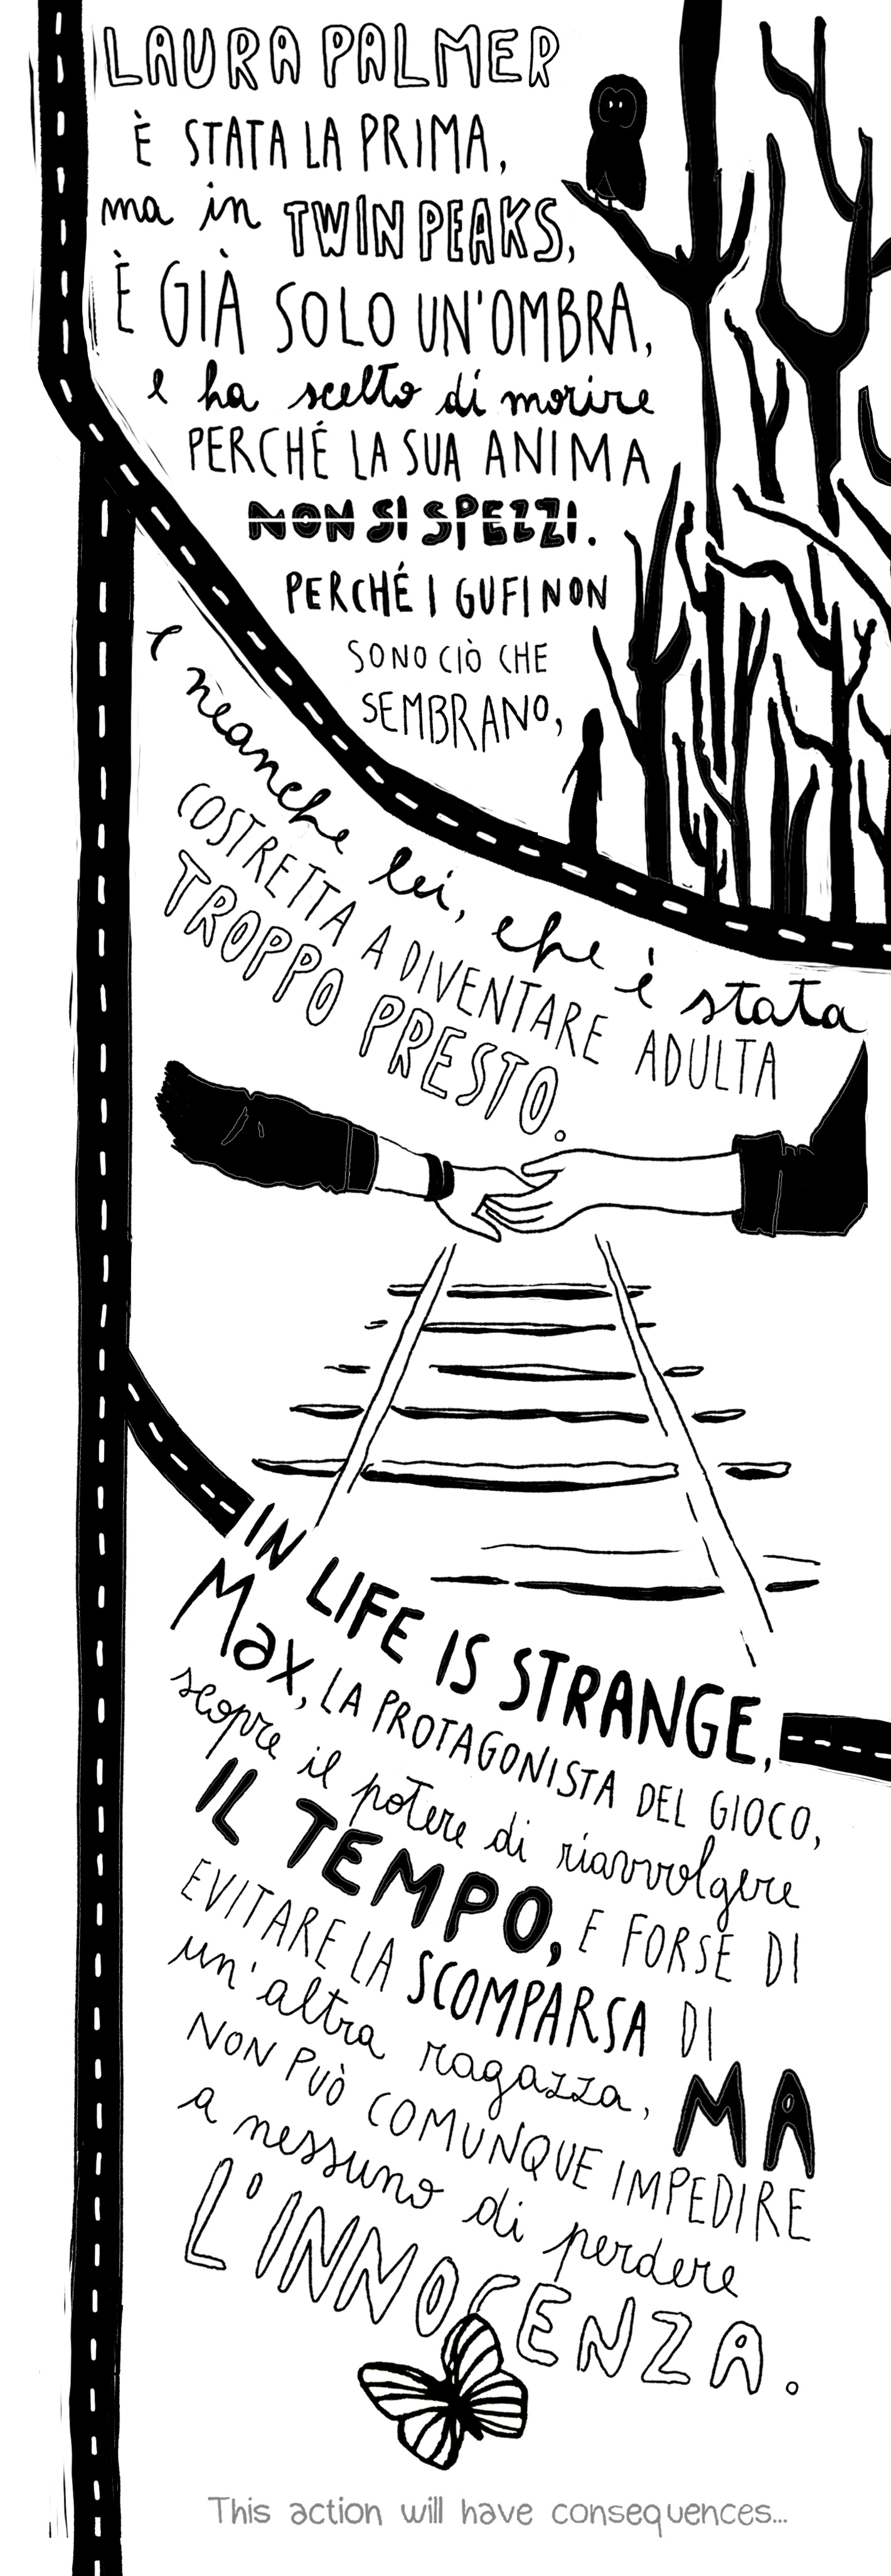 LAURA PALMER
È STATA LA PRIMA,
ma in TWIN PEAKS,
È GIÀ SOLO UN'OMBRA,
e ha scelto di morire
PERCHÉ LA SUA ANIMA
NON SI SPEZZI.
PERCHÉ I GUFI NON
SONO CIÒ CHE
SEMBRANO,
e neanche lei, che è stata
COSTRETTA A DIVENTARE ADULTA
TROPPO PRESTO.
IN LIFE IS STRANGE,
Max, LA PROTAGONISTA DEL GIOCO,
scopre il potere di riavvolgere
IL TEMPO, E FORSE DI
EVITARE LA SCOMPARSA DI
un'altra ragazza, MA
NON PUÒ COMUNQUE IMPEDIRE
a nessuno di perdere
L'INNOCENZA.
This action will have consequences...